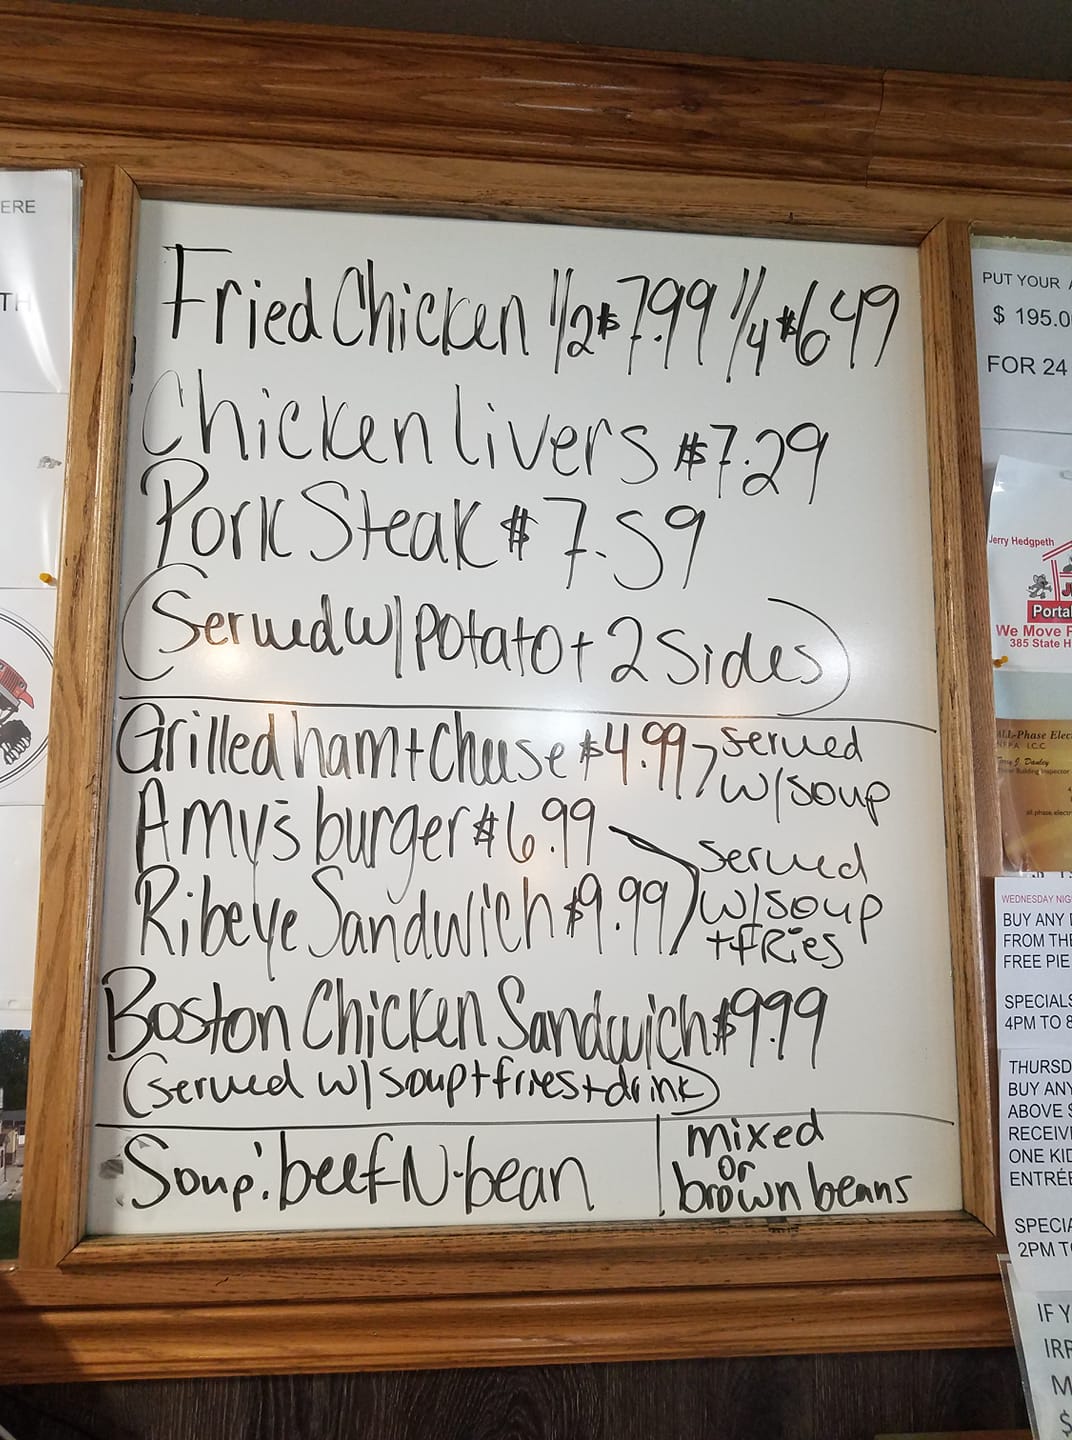 Fried Chicken 1/2 $7.99 1/4 $6.49
Chicken Livers $7.29
Pork Steak $7.59
(Served w/ potato + 2 sides)
Grilled ham + Cheese $4.99 served
w/ soup
Amy's burger $6.99 served
Ribeye Sandwich $9.99 w/ soup
+ fries
Boston Chicken Sandwich $9.99
(served w/ soup + fries + drink)
Soup: beef-N-bean
mixed
or
brown beans
ERE
TH
PUT YOUR A
$ 195.0
FOR 24
Jerry Hedgpeth
Portal
We Move P
385 State H
ALL-Phase Elec
I.C.C.
WEDNESDAY NIG
BUY ANY
FROM THE
FREE PIE
SPECIALS
4PM TO 8
THURSD
BUY ANY
ABOVE $
RECEIVE
ONE KID
ENTRÉE
SPECIA
2PM TO
IF Y
IRR
M
$